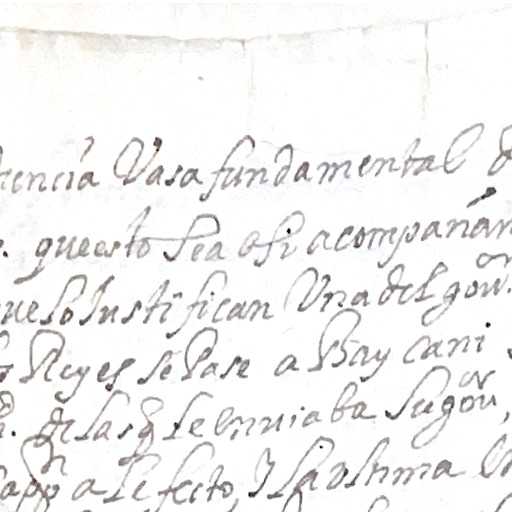 tencia Vasa fundamental d
. que esto sea asi acompañan
que lo Justifican Una del goūr.
Reyes se Pase a Bay cani
. de las q̃ le enuiaba su goūr,
a le fecto, I la vltima